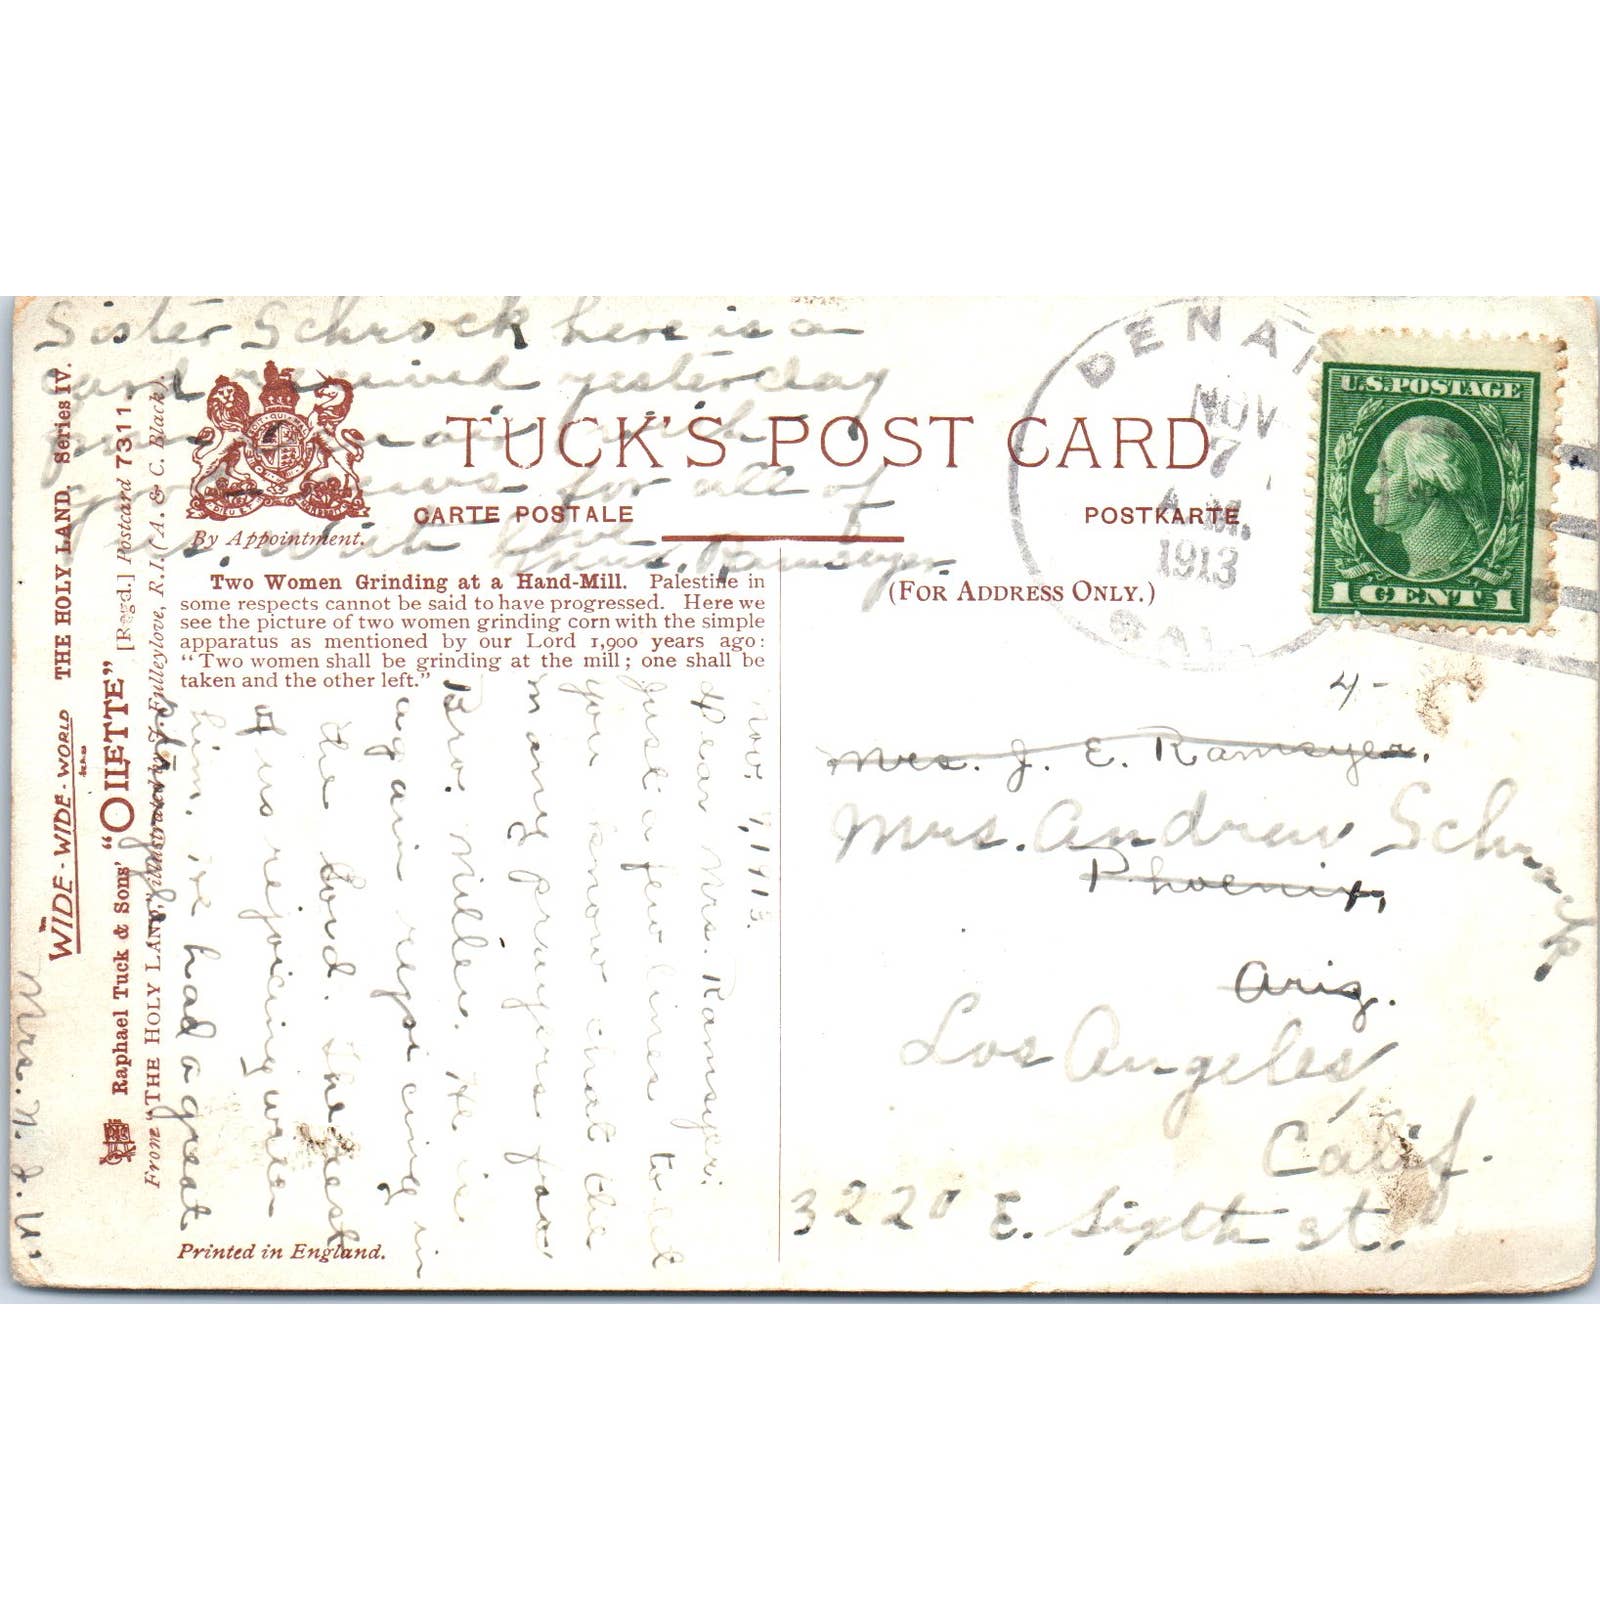 Sister Schrock here is a
card received yesterday
good news for all of
us. with love
Mrs. Ramseyer.
TUCK'S POST CARD
CARTE POSTALE
POSTKARTE
By Appointment.
(FOR ADDRESS ONLY.)
Two Women Grinding at a Hand-Mill. Palestine in
some respects cannot be said to have progressed. Here we
see the picture of two women grinding corn with the simple
apparatus as mentioned by our Lord 1,900 years ago:
"Two women shall be grinding at the mill; one shall be
taken and the other left."
DENAI
NOV
7
A.M.
1913
CAL
U.S.POSTAGE
1 CENT 1
WIDE-WIDE-WORLD
THE HOLY LAND. Series IV.
Raphael Tuck & Sons' "OILETTE" [Regd.] Postcard 7311
From "THE HOLY LAND," illustrated by J. Fulleylove, R.I. (A. & C. Black).
Nov. 7, 1913.
Dear Mrs. Ramseyer:
Just a few lines to let
you know that the
many prayers for
Bro. Miller. He is
again rejoicing in
the Lord. The rest
of us rejoicing with
him. We had a great
Printed in England.
4-
Mrs. J. E. Ramseyer.
Mrs. Andrew Schrock
Phoenix,
Ariz.
Los Angeles,
Calif.
3220 E. Sixth St.